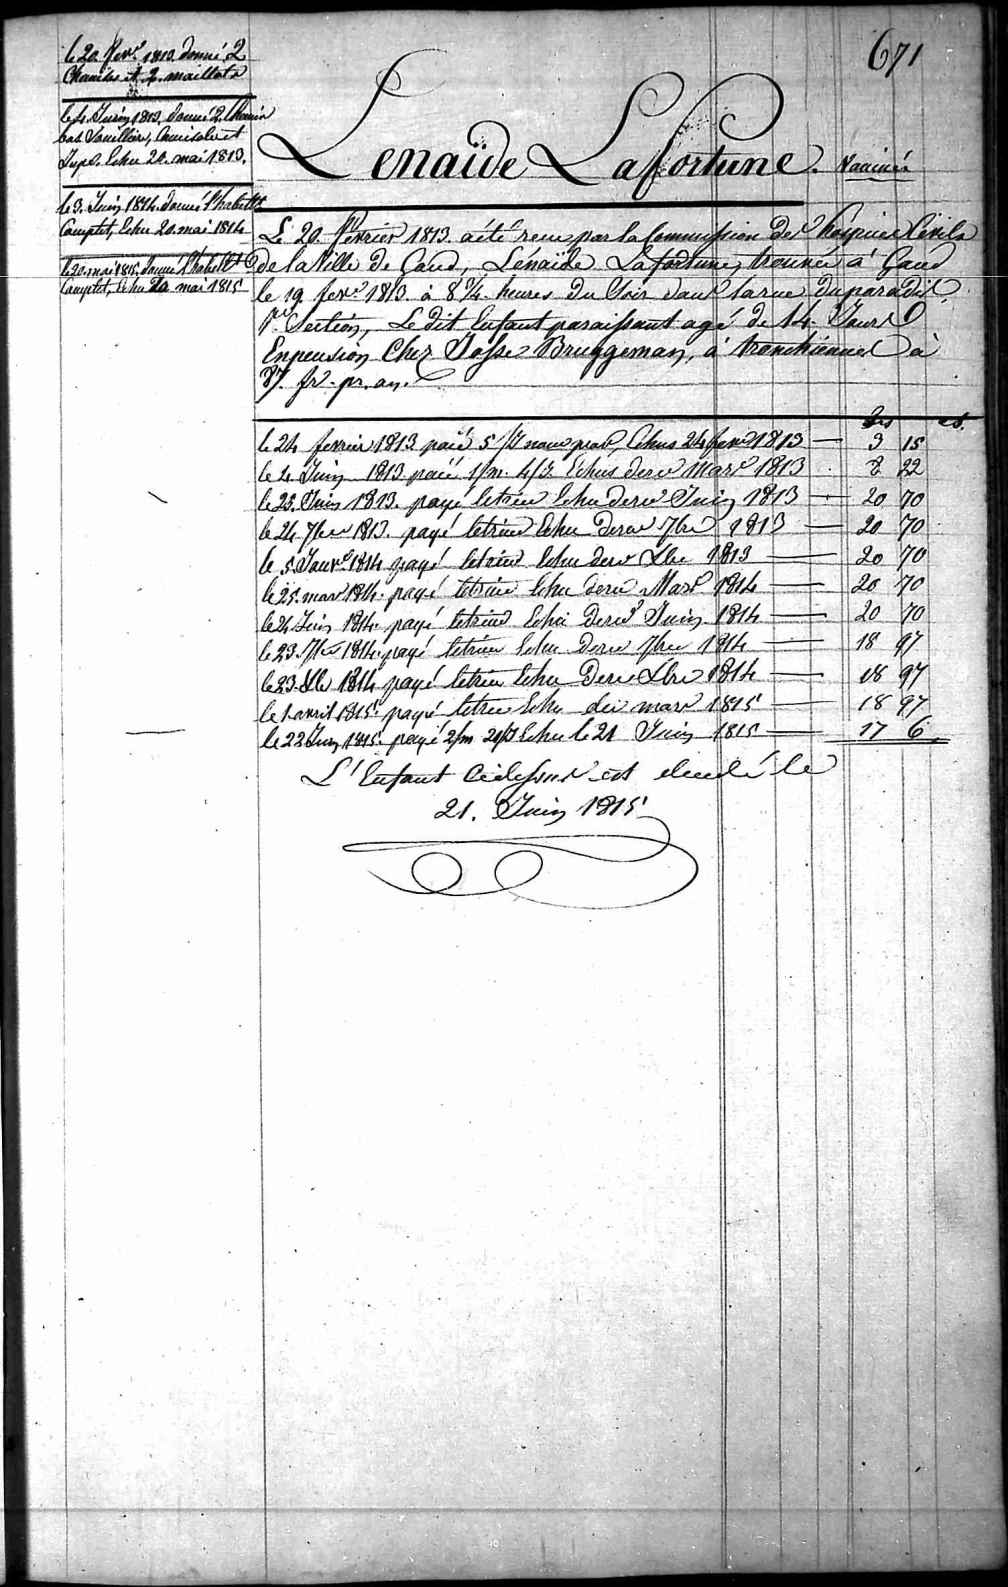 671
le 20. fevr. 1813. donné 2
Chemises et 2. maillots
le 4. Juin 1813. donné 2 Chemis
bas Souillier, Camisole et
Jupe. Echu 20. mai 1813.
le 3. Juin 1814. donné l'habillt
Complet, Echu 20. mai 1814
le 20. mai 1815. donné l'habillt
Complet, Echu 20 mai 1815
Lenaïde Lafortune. Vacciné
Le 20. février 1813. a été reçu par la Commission des hospices Civils
de la Ville de Gand, Lénaïde Lafortune, trouvée à Gand
le 19 fevr. 1813. à 8 3/4. heures du Soir dans la rue du paradis,
1re Section, Le dit Enfant paraissant agé de 14. Jours
Enpension Chez Josse Bruggeman, à tronchiennes à
87. fr. pr. an.
frs cs.
le 24 fevrier 1813 paié 5 Echus 24 fevr 1813 — 3 15
le 4 Juin 1813 paié 1/m. 4/J. Echus derer mars 1813 . 8 22
le 23. Juin 1813. payé letrim Echu derer Juin 1813 — 20 70
le 24 7bre 1813. payé letrim Echu derer 7bre 1813 — 20 70
le 5 Janvr 1814 payé letrim Echu derer Xbre 1813 — 20 70
le 25. mars 1814. payé letrim Echu derer Mars 1814 — 20 70
le 24 Juin 1814. payé letrim Echu derer Juin 1814 — 20 70
le 23. 7bre 1814. payé letrim Echu derer 7bre 1814 — 18 97
le 23. Xbr 1814 payé letrim Echu Derer Xbre 1814 — 18 97
le 1. avril 1815. payé letrim Echu der mars 1815 — 18 97
le 22 Juin 1815. payé 2/m 21/J Echu le 21 Juin 1815 — 17 6
L'Enfant Cidessus est decedé le
21. Juin 1815